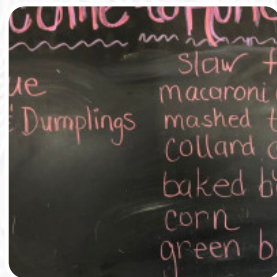 come to Hon
ue
Dumplings
slaw
macaroni
mashed
collard
baked b
corn
green b